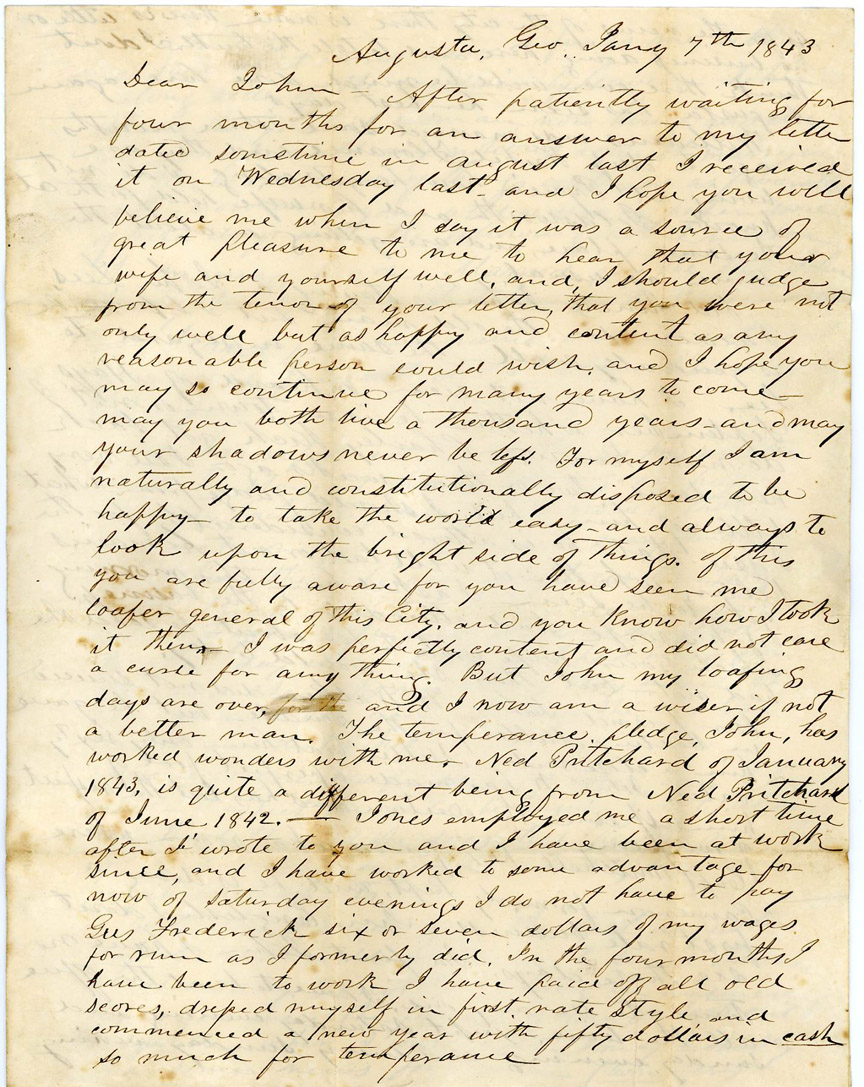 Augusta, Geo., Jany 7th 1843
Dear John - After patiently waiting for
four months for an answer to my letter
dated sometime in august last I received
it on Wednesday last - and I hope you will
believe me when I say it was a source of
great pleasure to me to hear that your
wife and yourself well, and, I should judge
from the tenor of your letter, that you were not
only well but as happy and content as any
reasonable person could wish, and I hope you
may so continue for many years to come -
may you both live a thousand years - and may
your shadows never be less. For myself I am
naturally and constitutionally disposed to be
happy - to take the world easy - and always to
look upon the bright side of things. Of this
you are fully aware for you have seen me
loafer general of this City, and you know how I took
it then - I was perfectly content and did not care
a curse for any thing. But John my loafing
days are over, and I now am a wiser if not
a better man. The temperance pledge, John, has
worked wonders with me - Ned Pritchard of January
1843, is quite a different being from Ned Pritchard
of June 1842. — Jones employed me a short time
after I wrote to you and I have been at work
since, and I have worked to some advantage for
now of Saturday evenings I do not have to pay
Gus Frederick six or seven dollars of my wages
for rum as I formerly did. In the four months I
have been to work I have paid off all old
scores, dressed myself in first rate style and
commenced a new year with fifty dollars in cash
so much for temperance